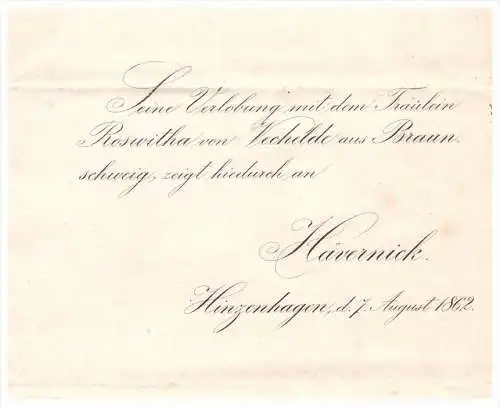 Seine Verlobung mit dem Fräulein
Roswitha von Vechelde aus Braun-
schweig, zeigt hiedurch an
Hävernick.
Hinzenhagen, d. 7. August 1862.